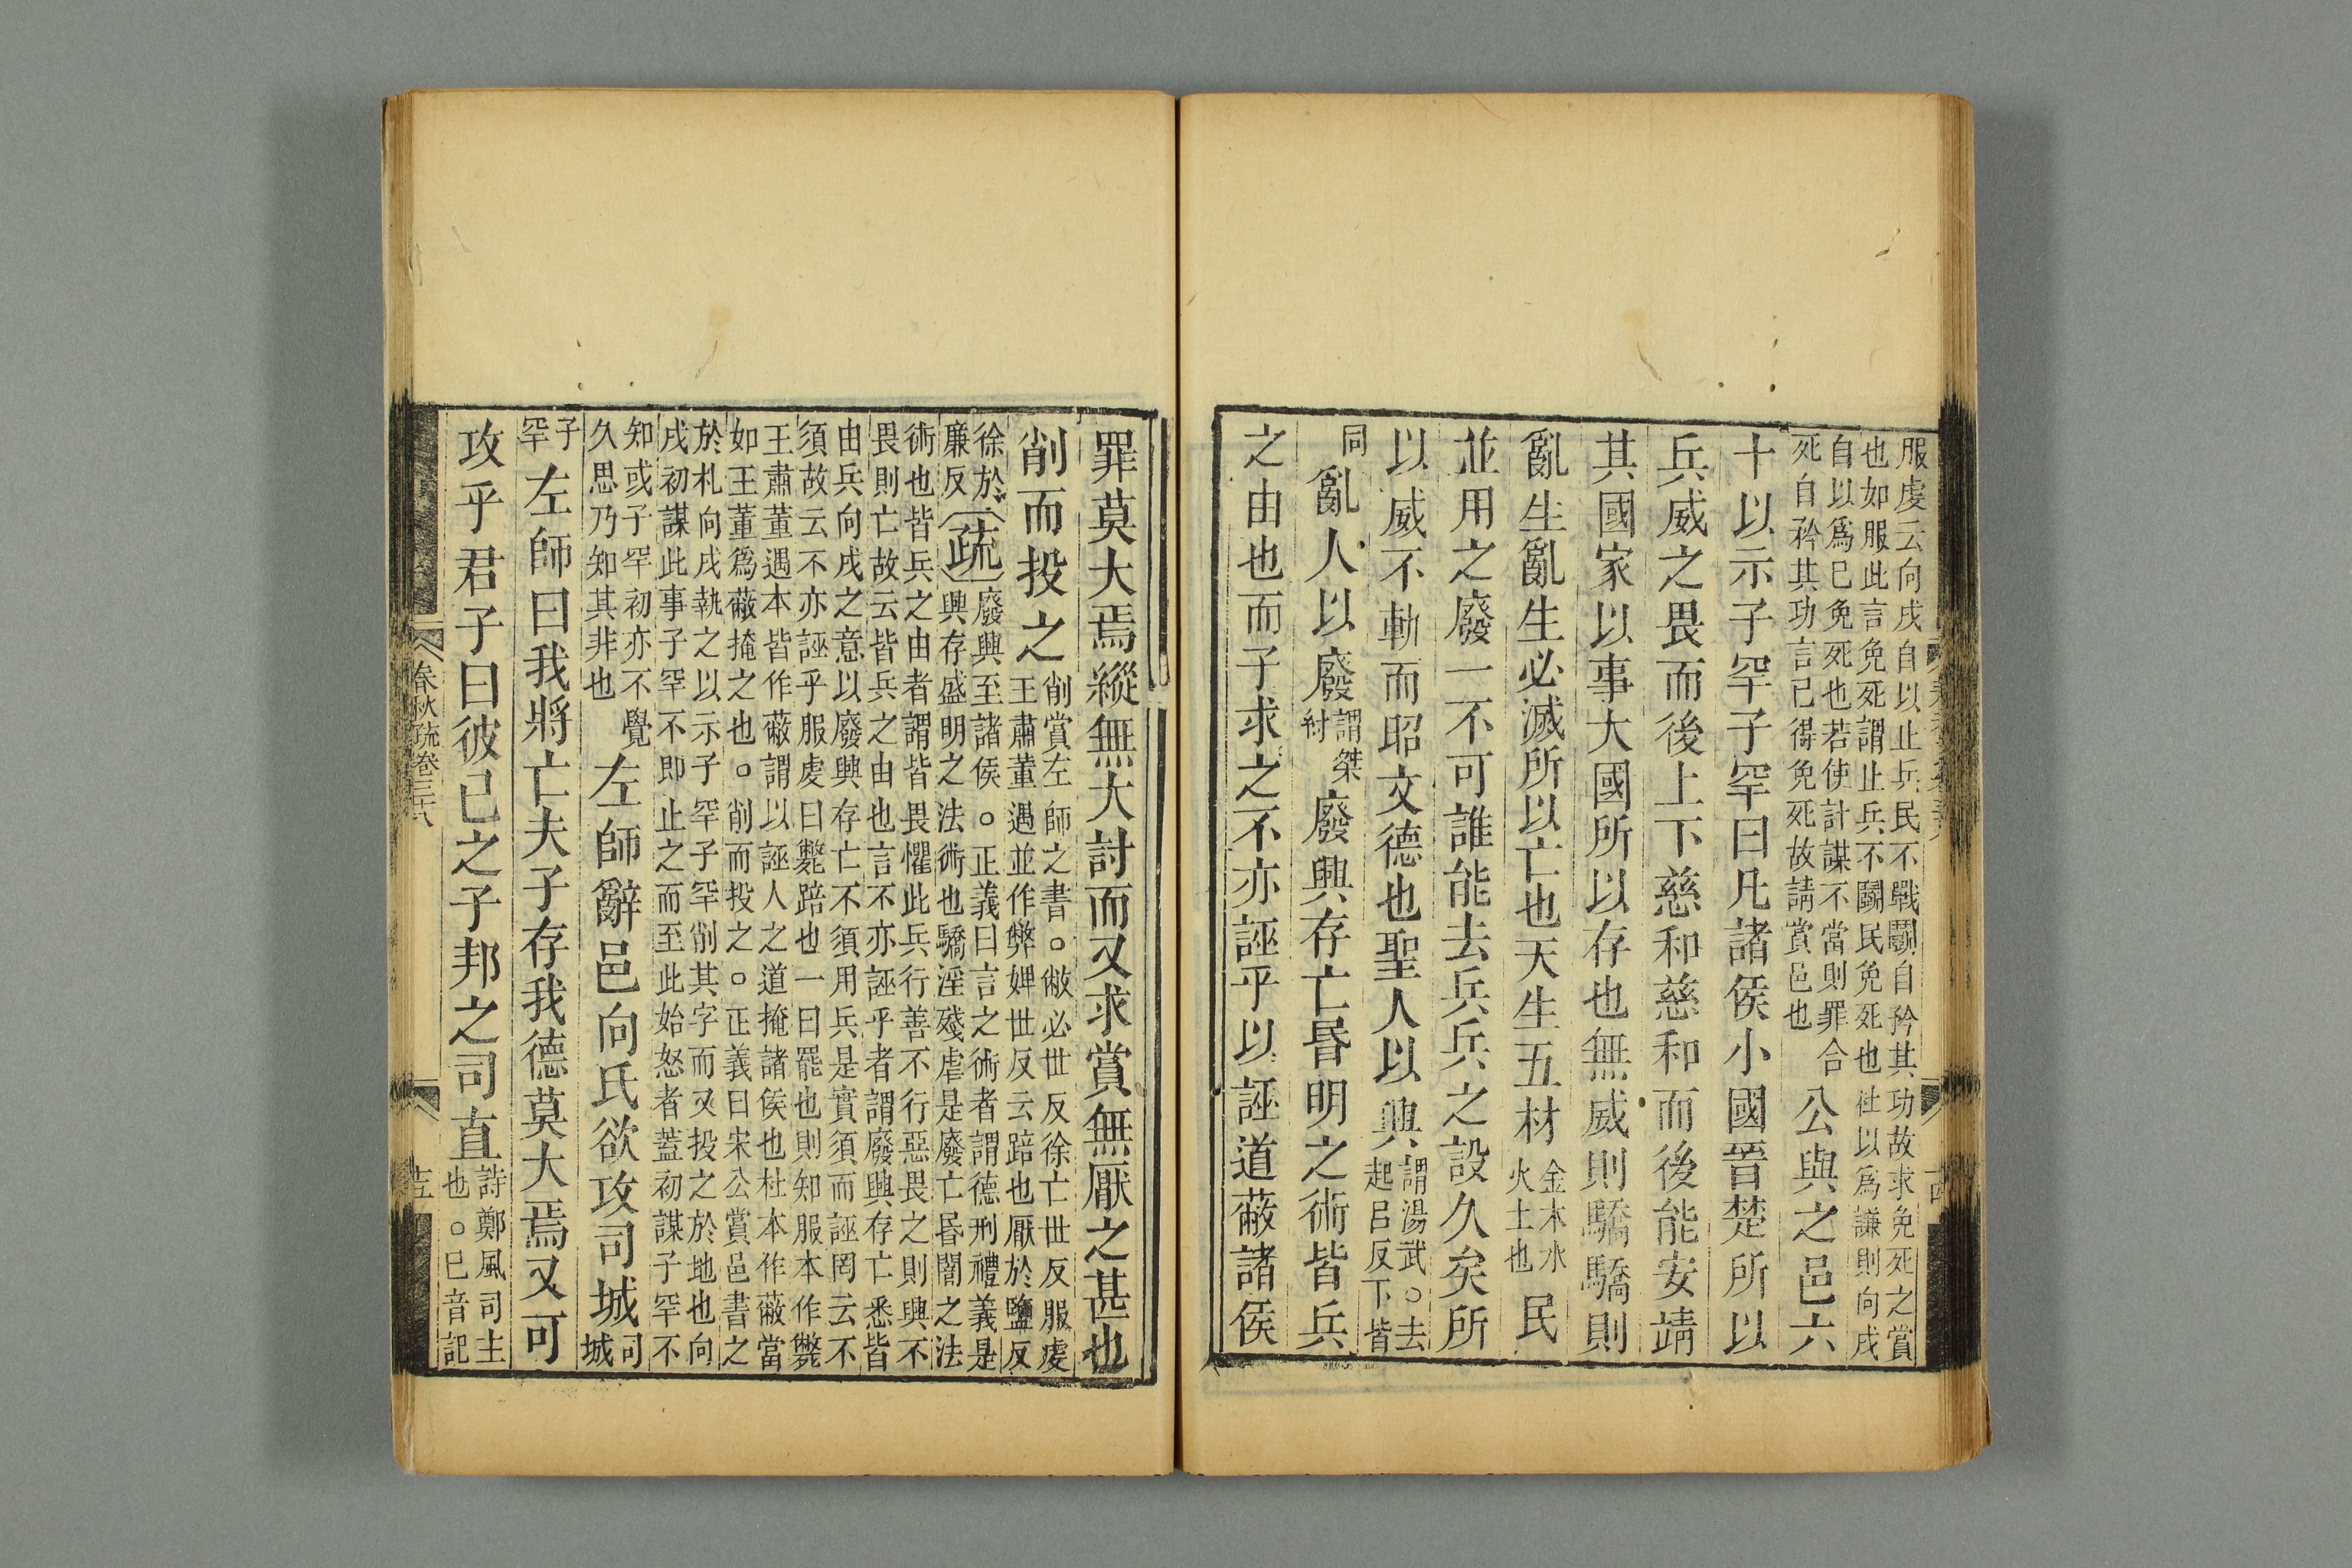 服虔云向戌自以止兵民不戰鬬自矜其功故求免死之賞
也如服此言免死謂止兵不鬬民免死也杜以爲謙則向戌
自以爲已免死也若使計謀不當則罪合
死自矜其功言已得免死故請賞邑也
公與之邑六
十以示子罕子罕曰凡諸侯小國晉楚所以
兵威之畏而後上下慈和慈和而後能安靖
其國家以事大國所以存也無威則驕驕則
亂生亂生必滅所以亡也天生五材金木水火土也民
並用之廢一不可誰能去兵兵之設久矣所
以威不軌而昭文德也聖人以興謂湯武○去起呂反下皆
同亂人以廢謂桀紂廢興存亡昬明之術皆兵
之由也而子求之不亦誣乎以誣道蔽諸侯
罪莫大焉縱無大討而又求賞無厭之甚也
削而投之削賞左師之書○敝必世反徐亡世反服虔
王肅董遇並作弊婢世反云踣也厭於鹽反
徐於
廉反
疏
廢興至諸侯○正義曰言之術者謂德刑禮義是
興存盛明之法術也驕淫殘虐是廢亡昬闇之法
術也皆兵之由者謂皆畏懼此兵行善不行惡畏之則興不
畏則亡故云皆兵之由也言不亦誣乎者謂廢興存亡悉皆
由兵向戌之意以廢興存亡不須用兵是實須而誣罔云不
須故云不亦誣乎服虔曰斃踣也一曰罷也則知服本作斃
王肅董遇本皆作蔽謂以誣人之道掩諸侯也杜本作蔽當
如王董爲蔽掩之也○削而投之○正義曰宋公賞邑書之
於札向戌執之以示子罕子罕削其字而又投之於地也向
戌初謀此事子罕不即止之而至此始怒者蓋初謀子罕不
知或子罕初亦不覺
久思乃知其非也
左師辭邑向氏欲攻司城司城
子罕左師曰我將亡夫子存我德莫大焉又可
攻乎君子曰彼己之子邦之司直詩鄭風司主也○已音記
春秋疏卷三十八